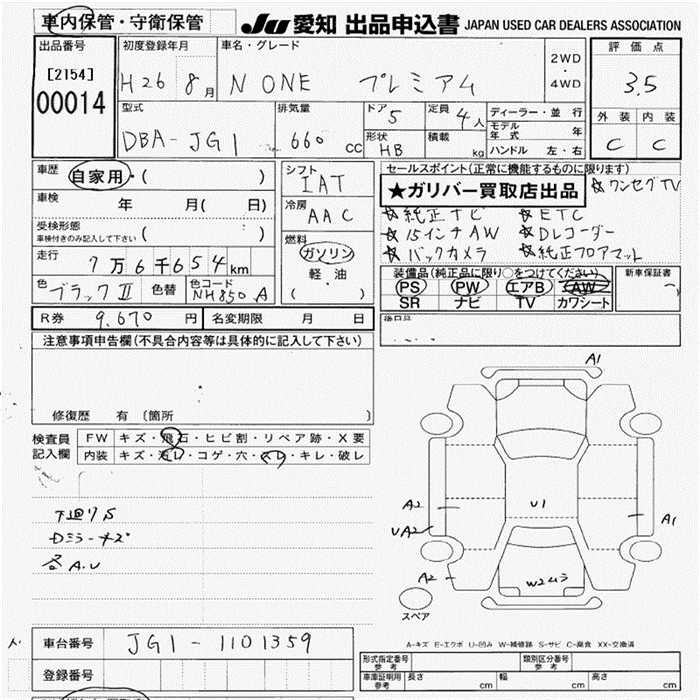 車内保管・守衛保管
JU 愛知 出品申込書 JAPAN USED CAR DEALERS ASSOCIATION
出品番号
[2154]
00014
初度登録年月
H26 8月
車名・グレード
N ONE プレミアム
2WD
・
4WD
評価点
3.5
外装 内装
C C
型式
DBA-JG1
排気量
660 CC
ドア 5
形状 HB
定員 4人
積載 kg
ディーラー・並行
モデル年式 年
ハンドル 左・右
車歴 自家用・( )
車検 年 月( 日)
受検形態
車検付きのみ記入して下さい ( )
走行 7万6千654km
色 ブラックⅡ 色替 色コード NH850 A
シフト
IAT
冷房
AAC
燃料
ガソリン
軽・油
( )
セールスポイント(正常に機能するものに限ります)
★ガリバー買取店出品
☆ワンセグTV
☆純正ナビ ☆ETC
☆15インチAW ☆Dレコーダー
☆バックカメラ ☆純正フロアマット
装備品(純正品に限り○をつけてください)
PS PW エアB AW
SR ナビ TV カワシート
新車保証書
R券 9,670円 名変期限 月 日
後日品
注意事項申告欄(不具合内容等は具体的に記入して下さい)
修復歴 有 〔箇所
検査員
記入欄
FW キズ・飛石・ヒビ割・リペア跡・X要
内装 キズ・汚レ・コゲ・穴・スレ・キレ・破レ
下廻りS
Dミラーキズ
各A.U
A1
A2
UA2
A2
U1
A1
W2ムラ
スペア
A-キズ E-エクボ U-凹み W-補修跡 S-サビ C-腐食 XX-交換済
車台番号 JG1-1101359
登録番号
形式指定番号
参考
類別区分番号
参考
車庫証明用
参考
長さ cm 幅 cm 高さ cm